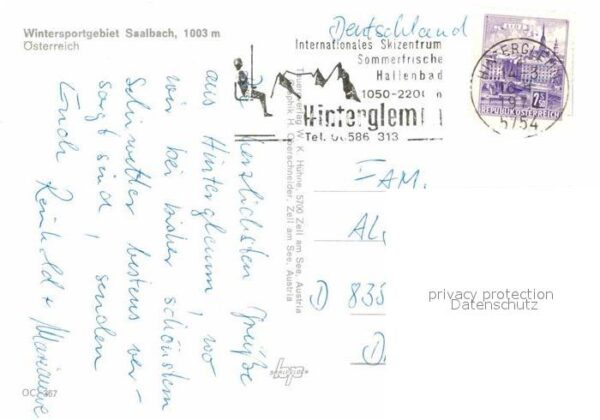 Wintersportgebiet Saalbach, 1003 m
Österreich
Deutschland
Internationales Skizentrum
Sommerfrische
Hallenbad
1050-2200 m
Hinterglemm
Tel. 06586 313
HINTERGLEMM
5754
2.50
REPUBLIK ÖSTERREICH
Die herzlichsten Grüße
aus Hinterglemm, wo
wir bei bisher schönstem
Schiwetter bestens ver-
sorgt sind, senden
Euch Reinhold + Marianne
Tauernverlag W. K. Hühne, 5700 Zell am See, Austria
Graphik H. Oberschneider, Zell am See, Austria
FAM.
AL
D 835
D.
privacy protection
Datenschutz